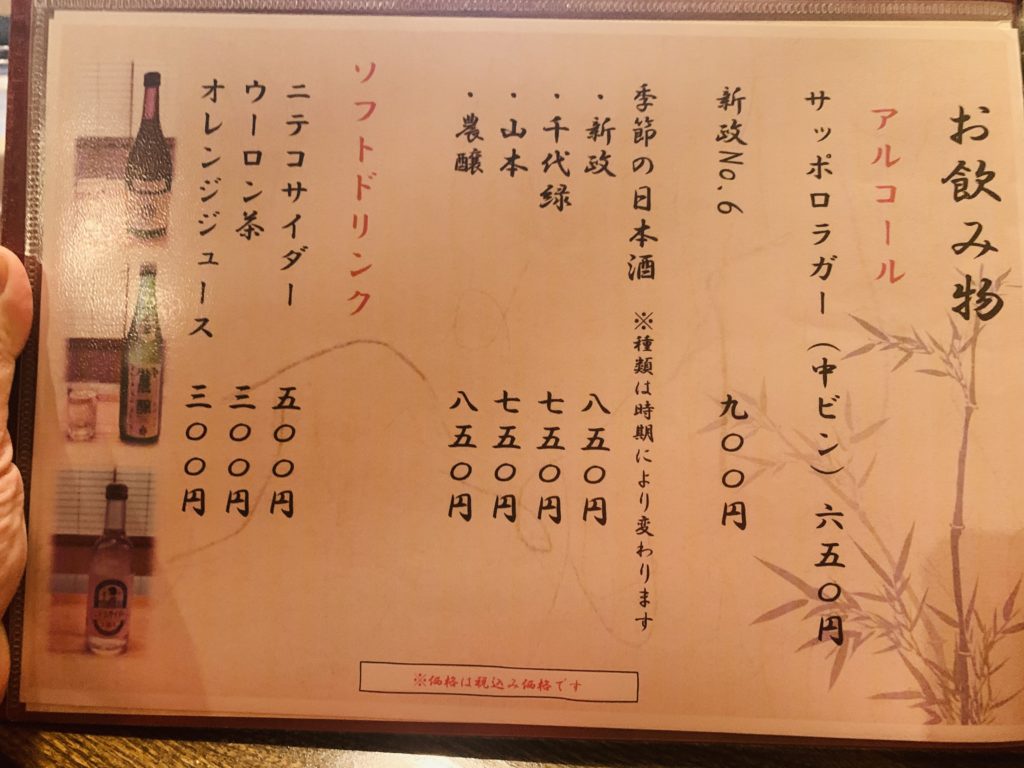 お飲み物
アルコール
サッポロラガー（中ビン） 六五〇円
新政No.6 九〇〇円
季節の日本酒 ※種類は時期により変わります
・新政 八五〇円
・千代緑 七五〇円
・山本 七五〇円
・農醸 八五〇円
ソフトドリンク
ニテコサイダー 五〇〇円
ウーロン茶 三〇〇円
オレンジジュース 三〇〇円
※価格は税込み価格です